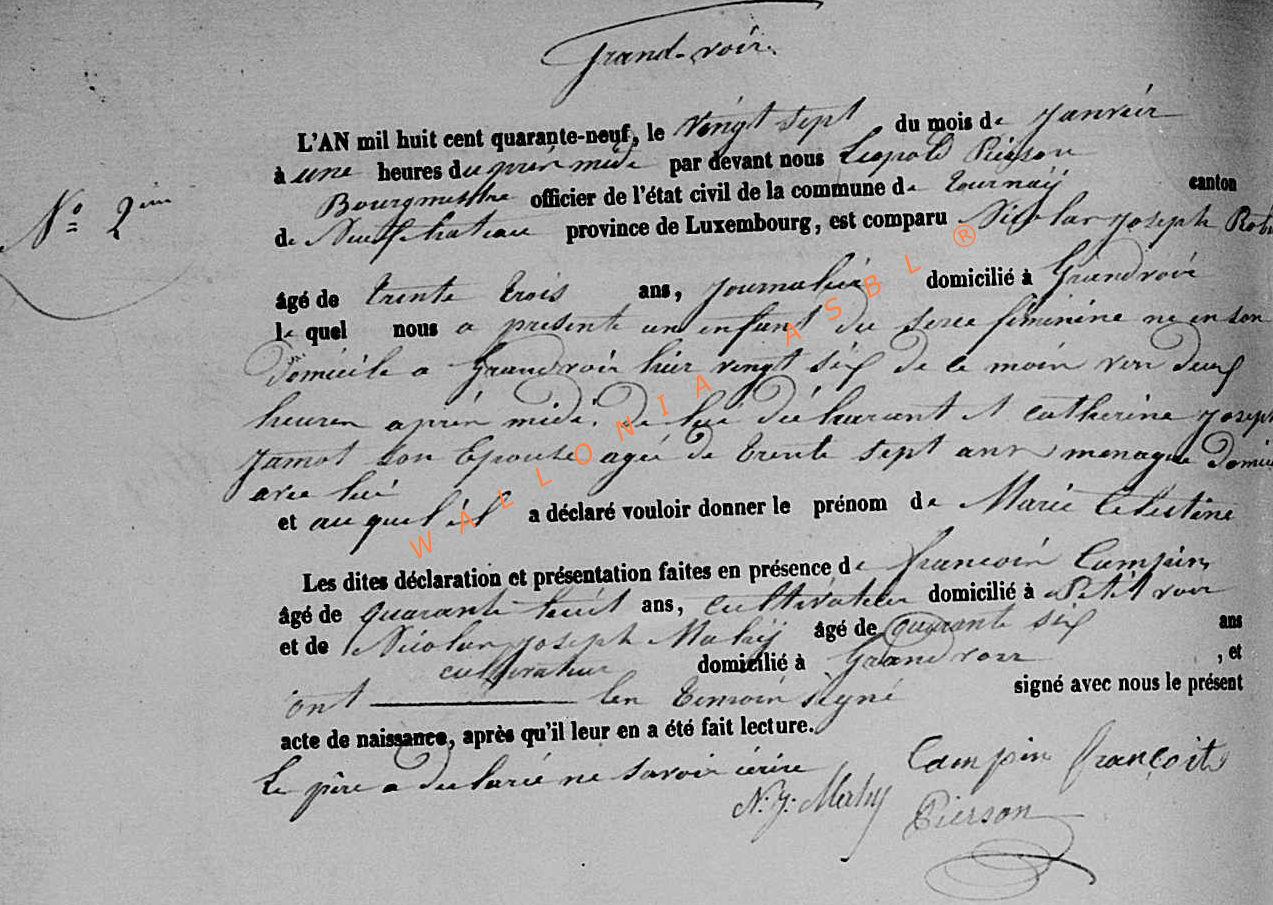 Grand-voir.
L'AN mil huit cent quarante-neuf, le vingt sept du mois de janvier
à une heures du aprèr midi par devant nous Léopold Pierson
Bourgmestre officier de l'état civil de la commune de tournay canton
N° 2ième
de Neufchateau province de Luxembourg, est comparu Nicolas joseph
âgé de trente trois ans, journalier domicilié à Grandvoir
le quel nous a présenté un enfant du sexe féminine né en son
domicile a Grandvoir hier vingt six de ce mois vers deux
heures après midi, de lui déclarant et catherine joseph
jamot son Epouse agée de trente sept ans menagere
avec lui
et auquel il a déclaré vouloir donner le prénom de Marie Celestine
Les dites déclaration et présentation faites en présence de francois Campin
âgé de quarante huit ans, cultivateur domicilié à Petit voir
et de Nicolas joseph Mahy âgé de quarante six ans
cultivateur domicilié à Grandvoir , et
ont les temoin signé signé avec nous le présent
acte de naissance, après qu'il leur en a été fait lecture.
Le père a declaré ne savoir écrire
Campin françois
N. J. Mahy
Pierson
WALLONIA ASBL ®